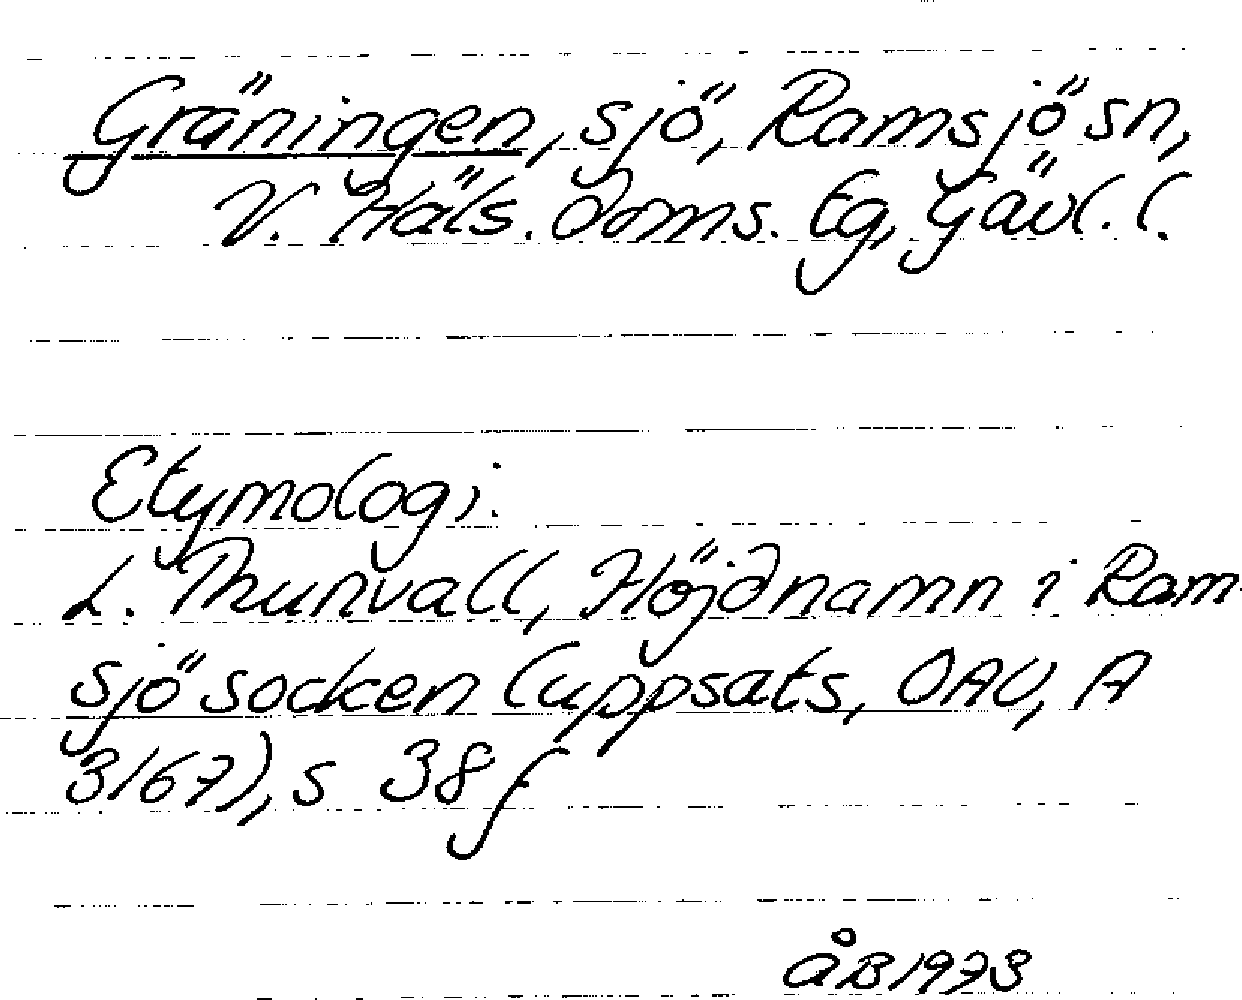 Gräningen, sjö, Ramsjö sn,
V. Häls. doms. Eg, Gävl. l.
Etymologi.
L. Thunvall, Höjdnamn i Ram-
sjö socken (uppsats, OAU, A
3/67), s 38 f
ÅB 1973